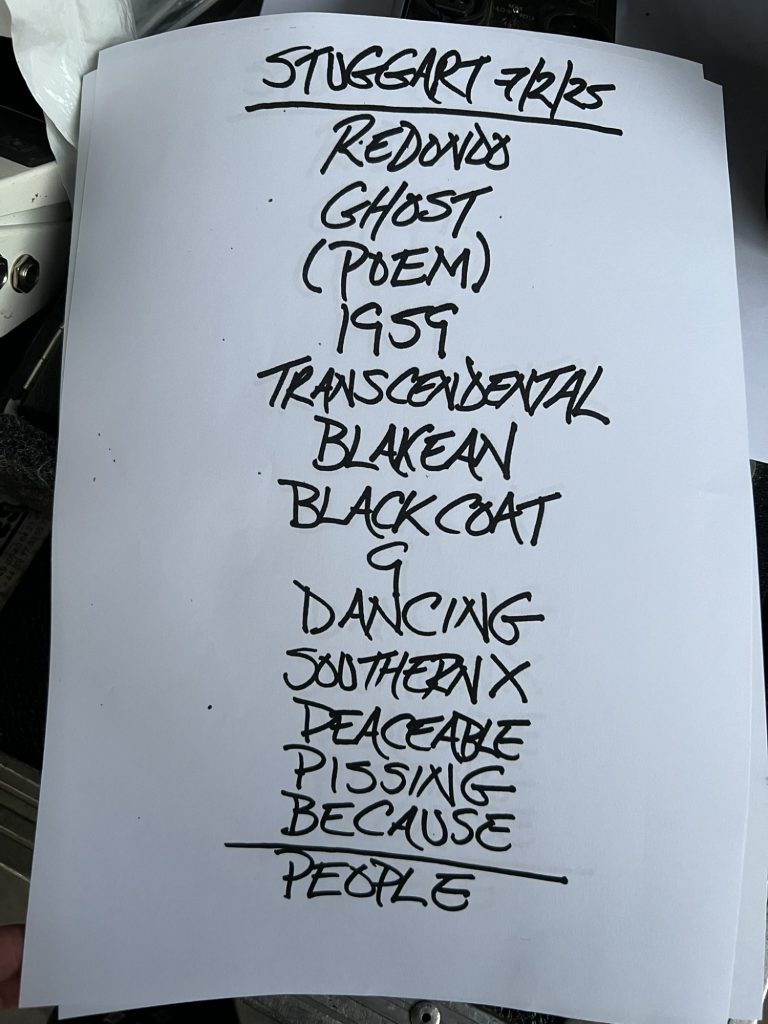 STUGGART 7/2/25
REDONDO
GHOST
(POEM)
1959
TRANSCENDENTAL
BLAKEAN
BLACK COAT
9
DANCING
SOUTHERN X
PEACEABLE
PISSING
BECAUSE
PEOPLE